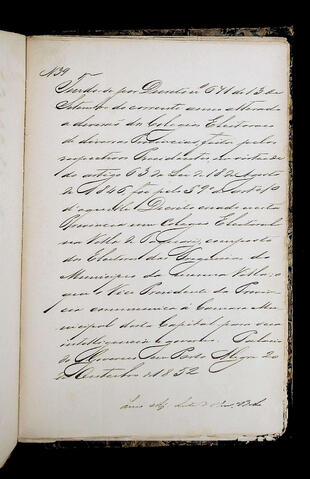 Nº 39
Tendo-se por Decreto nº 641 de 13 de
Setembro do corrente anno alterado
a divisão dos Collegios Eleitoraes
de diversas Provincias, feita pelos
respectivos Presidentes, em virtude
do artigo 63 da Lei de 18 de Agosto
de 1846, foi pelo § 9º do art.
d'aquelle Decreto creado nesta
Provincia um Collegio Eleitoral
na Villa de composto
dos Eleitores das Freguezias do
Municipio da mesma Villa, o
que o Vice Presidente da Provin
cia communica á Camara Mu
nicipal desta Capital para sua
intelligencia e governo. Palacio
do Governo em Porto Alegre 20
de Outubro de 1852
Luis